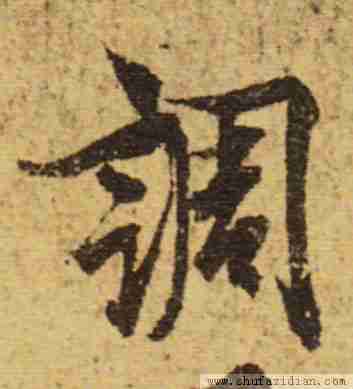 調
www.shufazidian.com